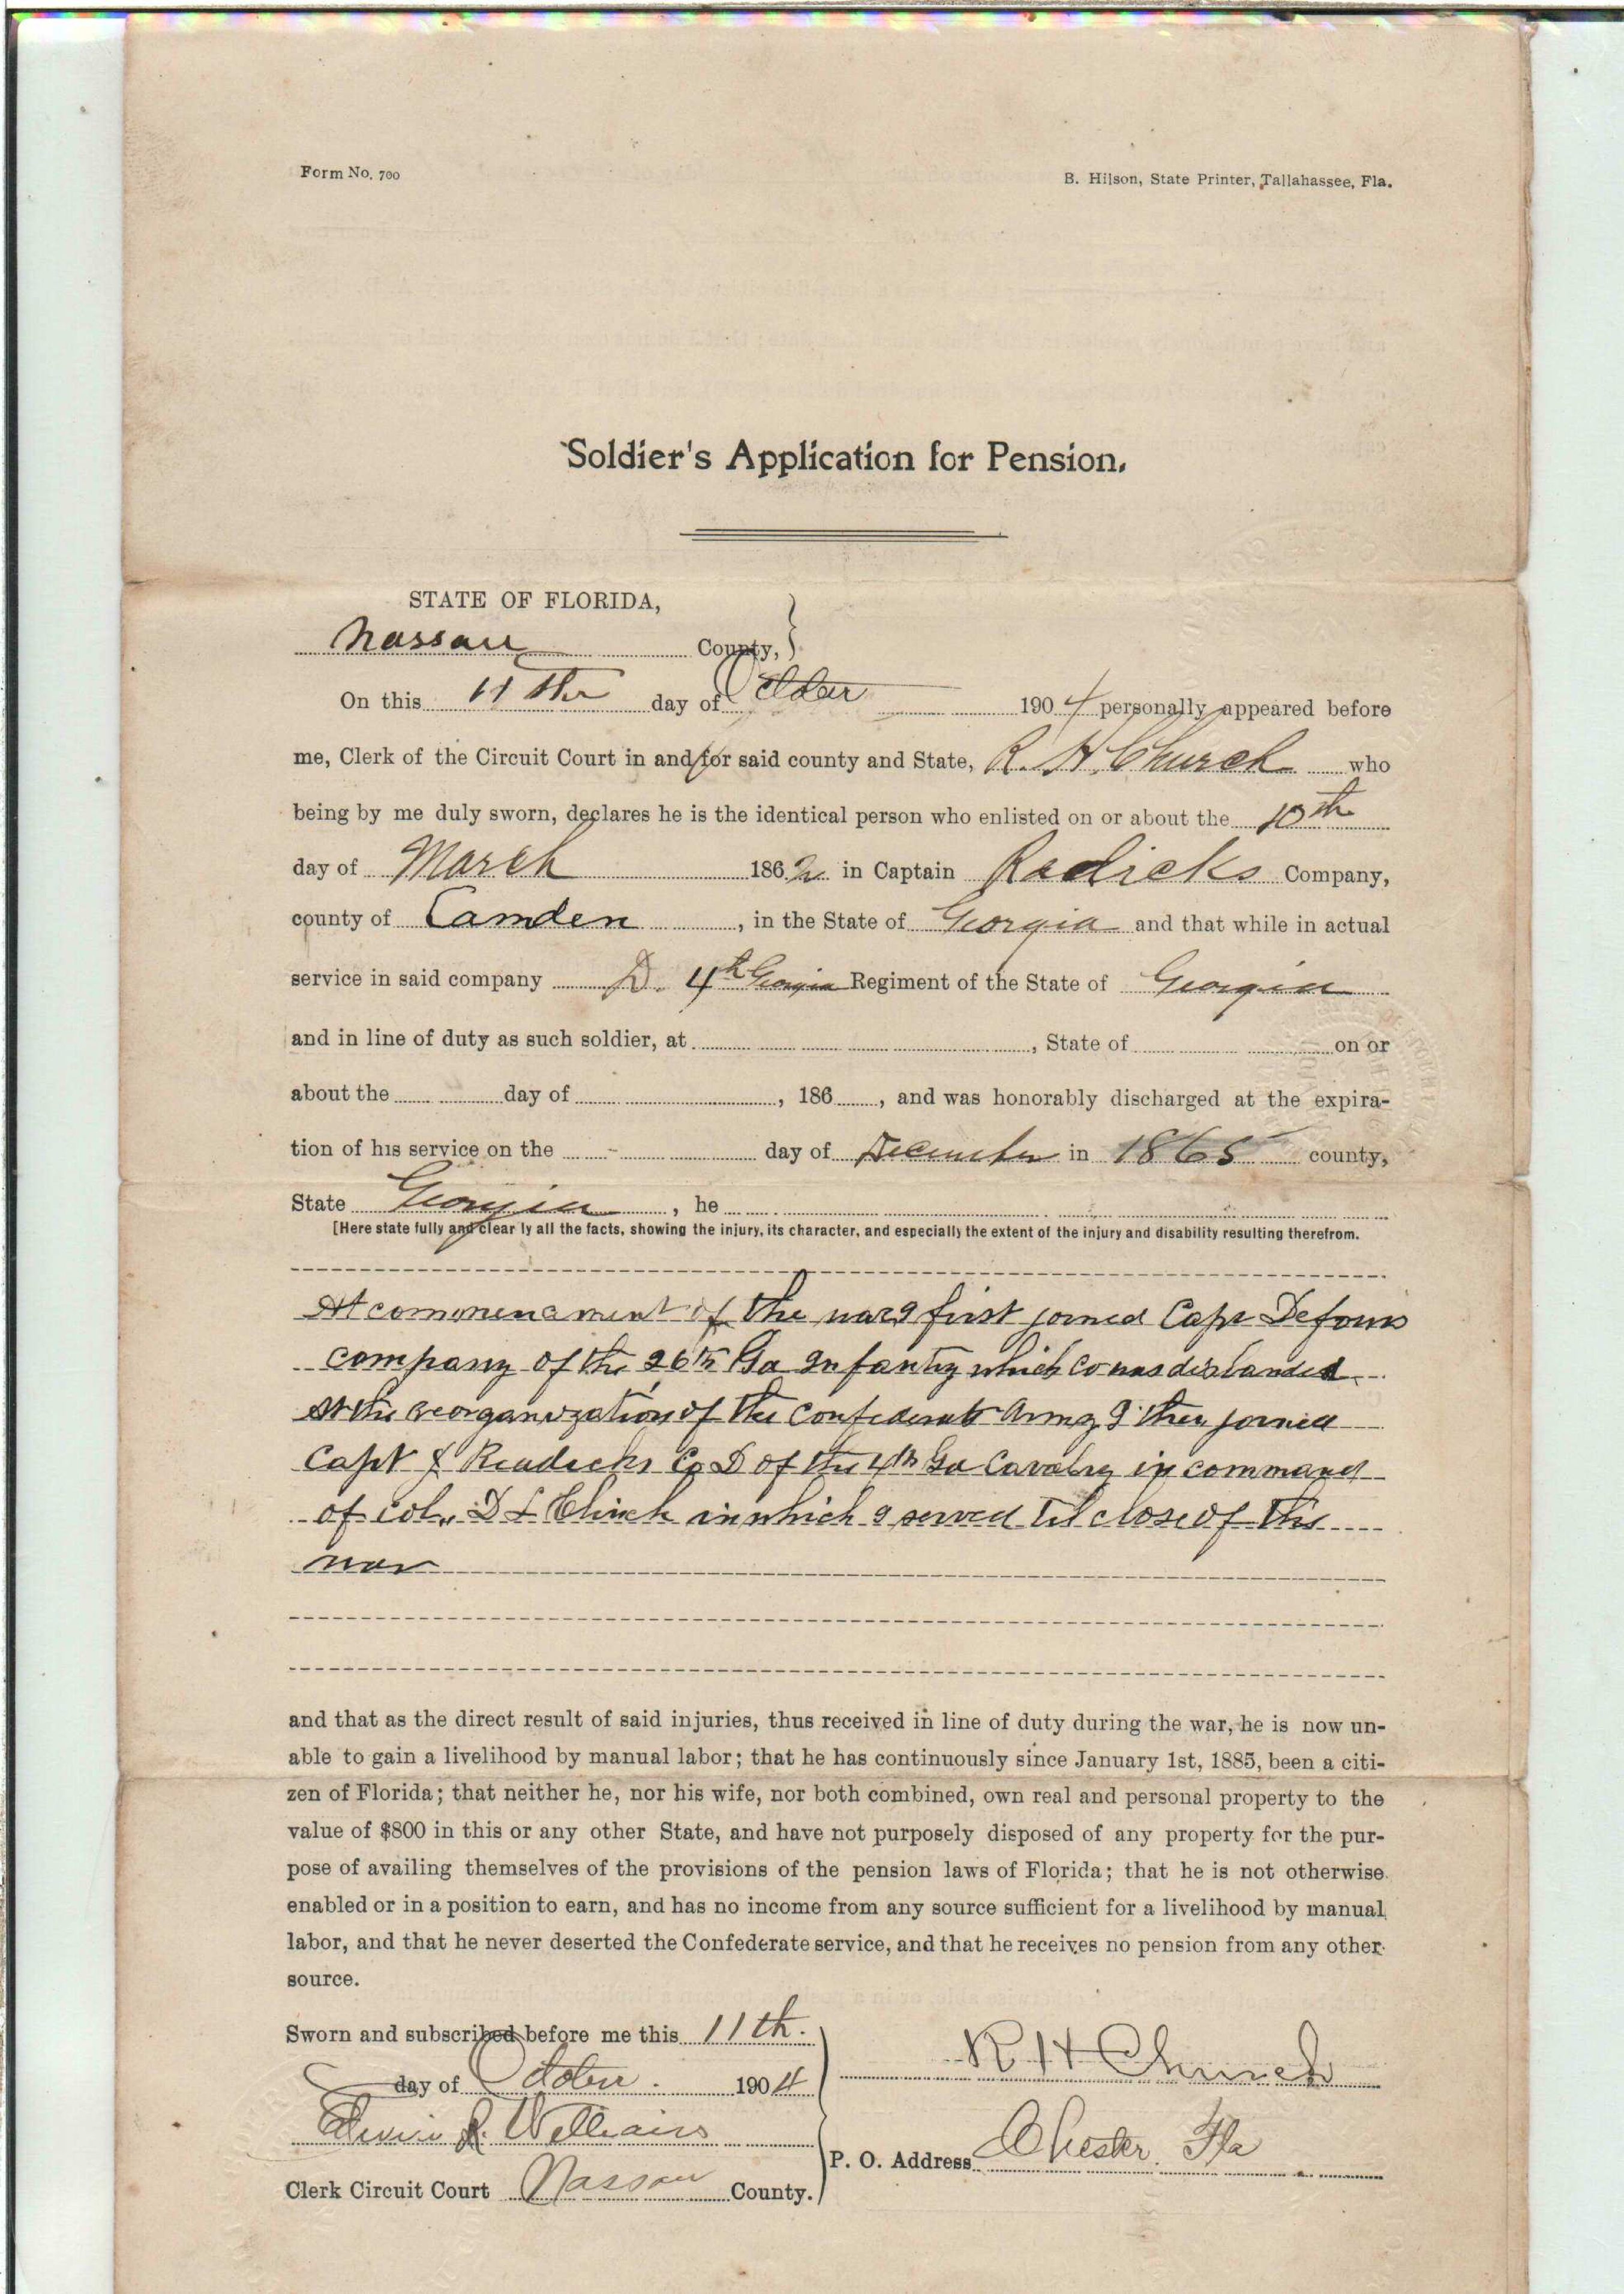 Form No. 700
B. Hilson, State Printer, Tallahassee, Fla.
Soldier's Application for Pension.
STATE OF FLORIDA,
Nassau County,
On this 11th day of October 1904 personally appeared before
me, Clerk of the Circuit Court in and for said county and State, R. H. Church who
being by me duly sworn, declares he is the identical person who enlisted on or about the 10th
day of March 1862 in Captain Radicks Company,
county of Camden, in the State of Georgia and that while in actual
service in said company D. 4th Georgia Regiment of the State of Georgia
and in line of duty as such soldier, at , State of on or
about the day of , 186 , and was honorably discharged at the expira-
tion of his service on the day of December in 1865 county,
State Georgia, he
[Here state fully and clear ly all the facts, showing the injury, its character, and especially the extent of the injury and disability resulting therefrom.
At commencment of the war I first joined Capt
company of the 26th Ga Infantry which Co was disbanded
at the reorganization of the Confederate Army I then joined
Capt Readicks Co D of the 4th Ga Cavalry in command
of col., D L Clinch in which I served til close of the
war
and that as the direct result of said injuries, thus received in line of duty during the war, he is now un-
able to gain a livelihood by manual labor; that he has continuously since January 1st, 1885, been a citi-
zen of Florida; that neither he, nor his wife, nor both combined, own real and personal property to the
value of $800 in this or any other State, and have not purposely disposed of any property for the pur-
pose of availing themselves of the provisions of the pension laws of Florida; that he is not otherwise
enabled or in a position to earn, and has no income from any source sufficient for a livelihood by manual
labor, and that he never deserted the Confederate service, and that he receives no pension from any other
source.
Sworn and subscribed before me this 11th.
R H Church
day of October. 1904
Edwin R. Williams
P. O. Address Chester, Fla
Clerk Circuit Court Nassau County.